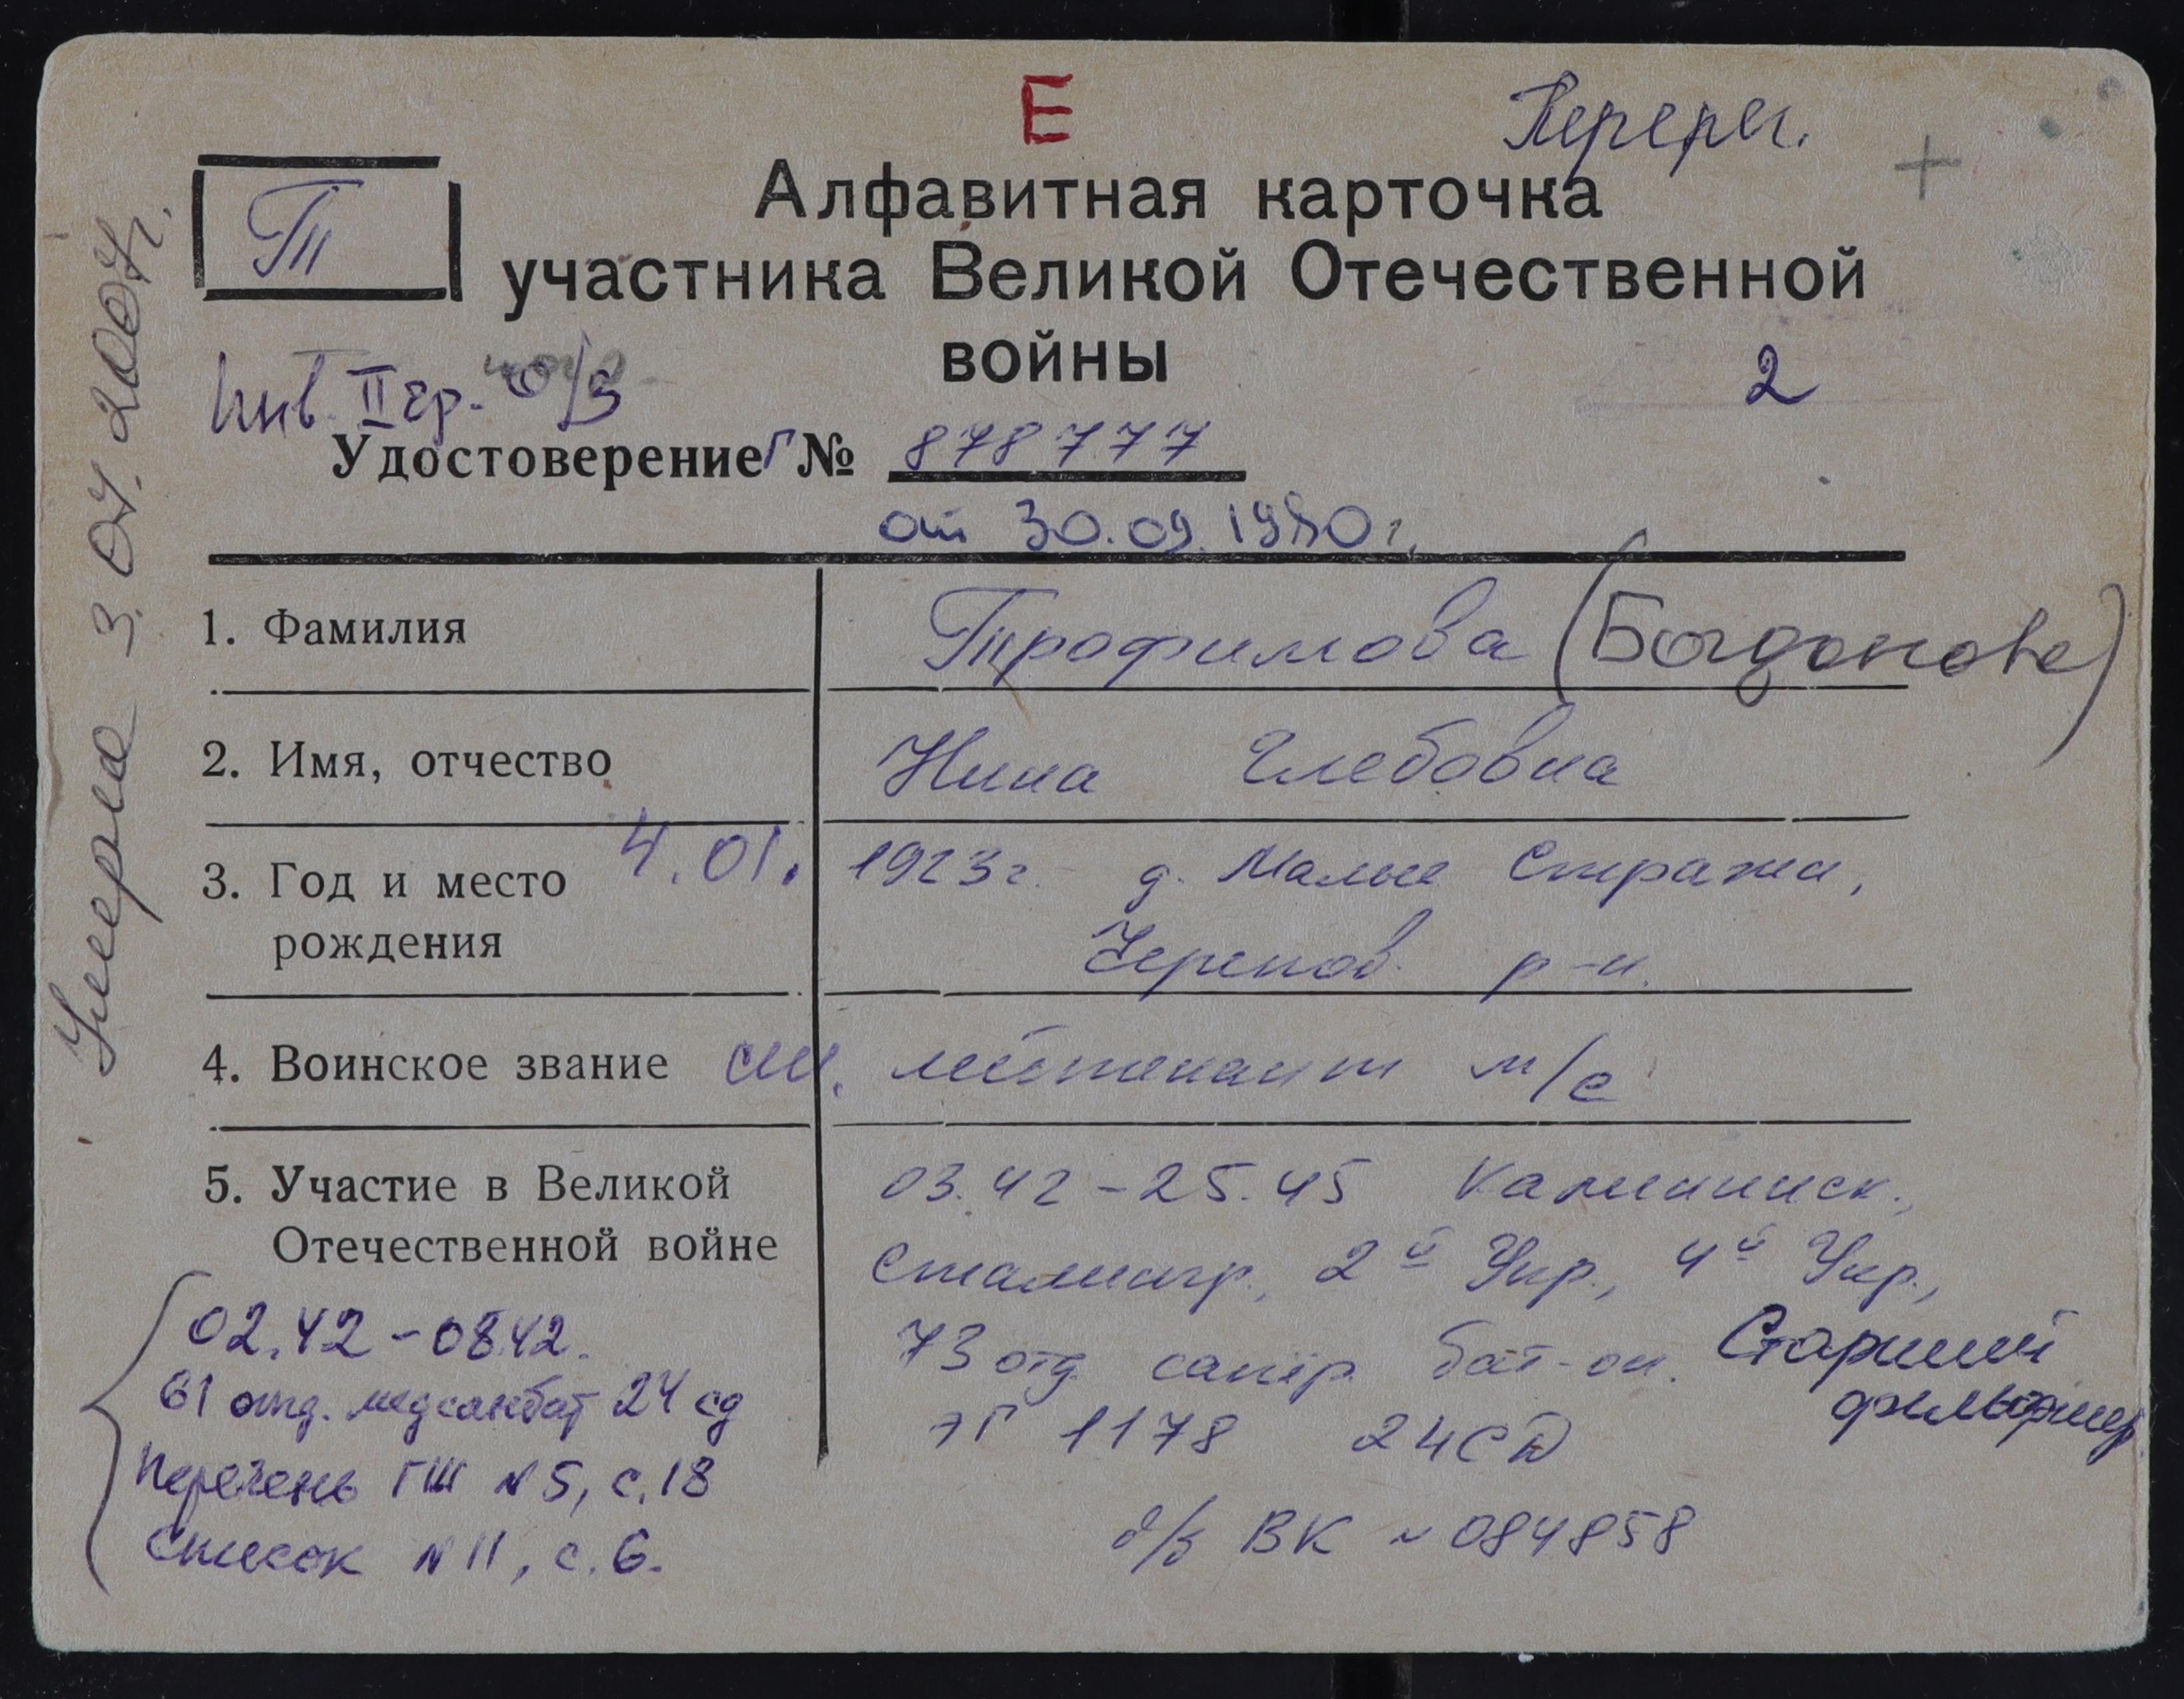 Е
Перерег.
Т
Алфавитная карточка
участника Великой Отечественной
войны
2
Инв. II гр. о/з
Удостоверение Г № 878777
от 30.09.1980г.
1. Фамилия Трофимова (Богданова)
2. Имя, отчество Нина Глебовна
3. Год и место 4.01. 1923г. д. Малые Стражи,
рождения Черепов. р-н.
4. Воинское звание ст. лейтенант м/с
5. Участие в Великой 03.42-25.45 Калининск.,
Отечественной войне Сталингр., 2й Укр., 4й Укр.,
73 отд. сапёр. бат-он. Старший
фельдшер
ЭГ 1178 24 СД
02.42-08.42.
61 отд. медсанбат 24 сд
Перечень ГШ №5, с.18
Список №11, с.6.
в/б ВК №084858
Умерла 3.07.2007г.